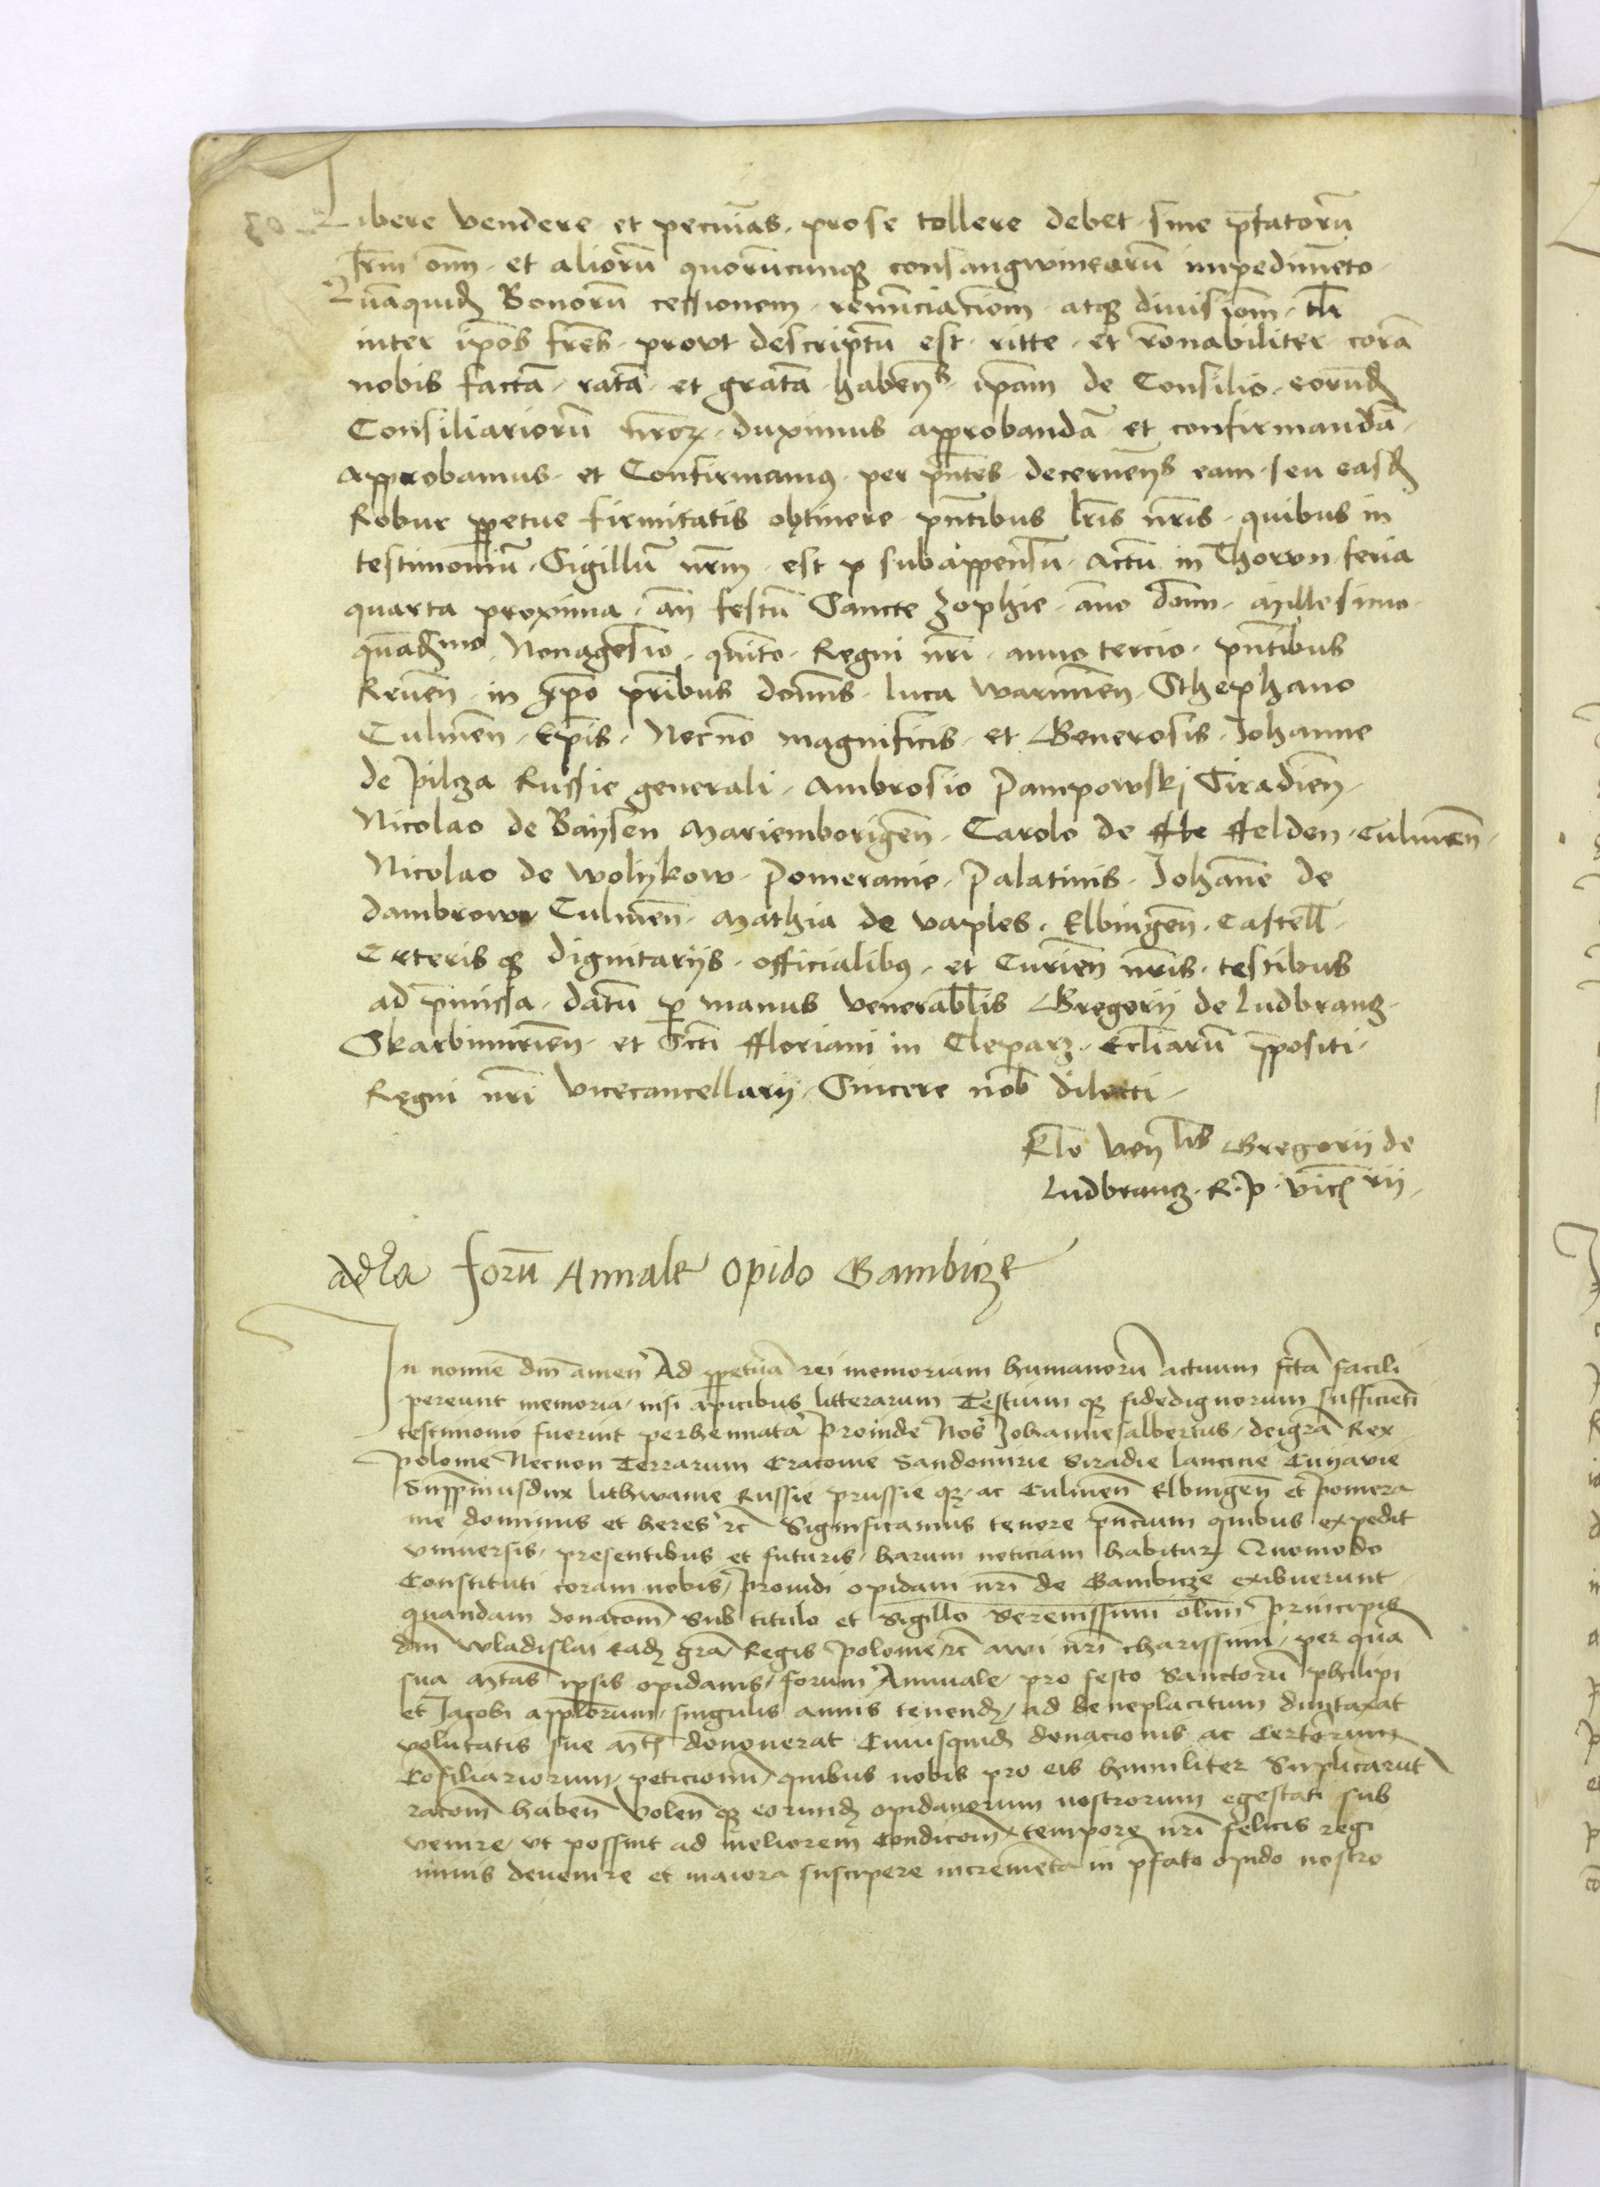 Libere vendere et pecuīas. pro se tollere debet. sine p̄fatorū
frm̄ om̄. et aliorū quorūcunqꝫ consangwineorū impedimēto.
Quāquidꝫ Bonorū cessionem. renūciaciom̄. atqꝫ diuisiom̄.
inter ip̄os fr̄es. prout descriptū est. ritte. et rōnabiliter corā
nobis factā. ratā. et gratā. haben̄s. ip̄am de Consilio. eorūdꝫ
Consiliariorū nr̄oꝝ. duximus approbandā. et confirmandā.
Approbamus. et Confirmamꝰ. per pn̄tes. decernen̄s eam. seu easdꝫ
Robur ꝑpetue firmitatis obtinere pn̄tibus lr̄is nr̄is. quibus in
testimoniū. Sigillū nr̄m. est p subappensū. Actū in Thorvn feria
quarta proxima. an̄ festū Sancte Zophie. año dom̄. Millesimo.
quadꝫmo. Nonagesīo. quīto. Regni nr̄i. anno tercio. pn̄tibus
Reuen̄. in xp̄o pr̄ibus domīs. Luca Warmien̄. Sthephano
Culmen̄. Ep̄is. Necnō magnificis. et Generosis. Iohanne
de Pilcza Russie generali. Ambrosio Pampowskj Siradien̄.
Nicolao de Baysen Mariemborigen̄. Carolo de ffle ffelden. Culmen̄.
Nicolao de Wolykow. Pomeranie. Palatinis. Iohāne de
dambrowa Culmen̄. Mathia de vaples. Elbingen̄. Castell̄.
Ceterisqꝫ dignitariis. officialibꝰ. et Curien̄ nr̄is. testibus
ad p̄missa. datū ꝑ manus venerabl̄is Gregorii de Ludbrancz.
Skarbimirien̄. et Sc̄ti ffloriani in Cleparz. Eccl̄iarū p̄positi.
Regni nr̄i vicecancellarij. Sincere nob̄ dilecti.
Rl̄o ven̄lis Gregorii de
Ludbrancz. R. P. vic̄rii.
Forū Annale opido Gambicze
In nomīe dnī amen Ad ꝑpetuā rei memoriam humanorū actuum fc̄ta facili
pereunt memoria, nisi apicibus litterarum Testium qꝫ fidedignorum sufficienti
testimonio fuerint perhennata Proinde Nos Johannesalbertus, deigrā Rex
polonie Necnon Terrarum Cracouie Sandomirie Siradie lancicie Cuyavie
Suppremusdux lithwanie Russie prussie qꝫ. ac Culmen̄ Elbingen̄ et Pomera
nie dominus et heres ꝛc Significamus tenore pn̄cium quibus expedit
vniuersis, presentibus et futuris, harum noticiam habituꝝ Quomodo
Constituti coram nobis, prouidi opidani nr̄i de Gambicze exibuerunt
quandam donacom̄ sub titulo et Sigillo Serenissimi olim principis
dnī Wladislai eadꝫ grā Regis polonie ꝛc awi nr̄i charissimi, per quā
sua Mtas ipsis opidanis, forum Annuale, pro festo Sanctorū philipi
et Jacobi appl̄orum, singulis annis tenendꝫ, ad beneplacitum dumtaxat
volūtatis sue Mtꝭ donouerat Cuiusquidꝫ donacionis ac Certorum
Cōsiliariorum, peticionū, quibus nobis pro eis humiliter Suplicarūt
racom̄ haben̄ Volen̄ qꝫ eorundꝫ opidanorum nostrorum egestati sub
venire, vt possint ad meliorem Condicom̄ tempore nr̄i felicis regi
minis deuenire et maiora suscipere incremēta in p̄fato opido nostro